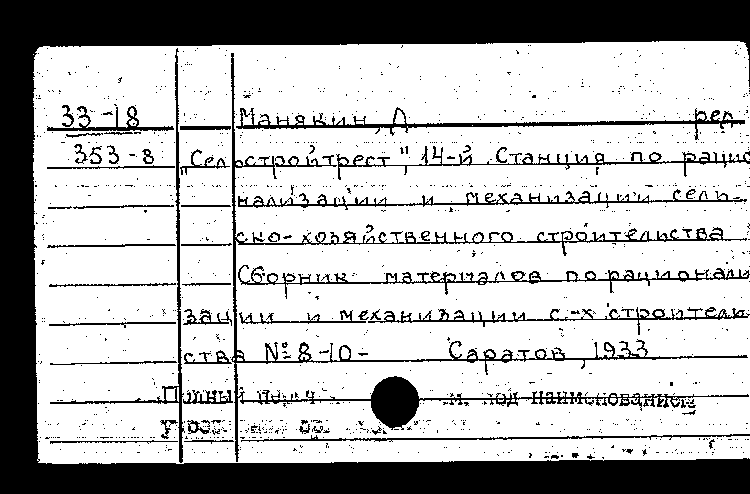 33-18 Манякин, Д ред
353-8 „Сельстройтрест", 14-й Станция по рацио
нализации и механизации сель-
ско-хозяйственного строительства
Сборник материалов по рационали
зации и механизации с-х строитель-
ства № 8-10- Саратов, 1933
Полный м. под наименованием